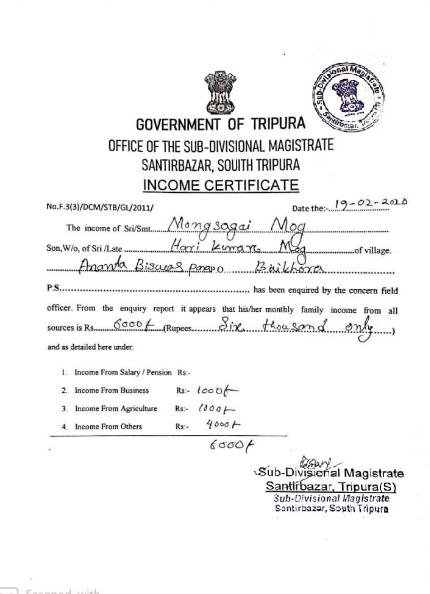 Sub-Divisional Magistrate
Santirbazar
GOVERNMENT OF TRIPURA
OFFICE OF THE SUB-DIVISIONAL MAGISTRATE
SANTIRBAZAR, SOUITH TRIPURA
INCOME CERTIFICATE
No.F.3(3)/DCM/STB/GL/2011/ Date the:- 19-02-2020
The income of Sri/Smt. Mongsagai Mog
Son,W/o, of Sri /Late Hari Kumar Mog of village.
Ananta Biswas para P.O Baikhora
P.S. has been enquired by the concern field
officer. From the enquiry report it appears that his/her monthly family income from all
sources is Rs. 6000/- (Rupees. Six thousand only )
and as detailed here under:
1. Income From Salary / Pension Rs:-
2. Income From Business Rs:- 1000/-
3. Income From Agriculture Rs:- 1000/-
4. Income From Others Rs:- 4000/-
6000/-
Sub-Divisional Magistrate
Santirbazar, Tripura(S)
Sub-Divisional Magistrate
Santirbazar, South Tripura
Scanned with